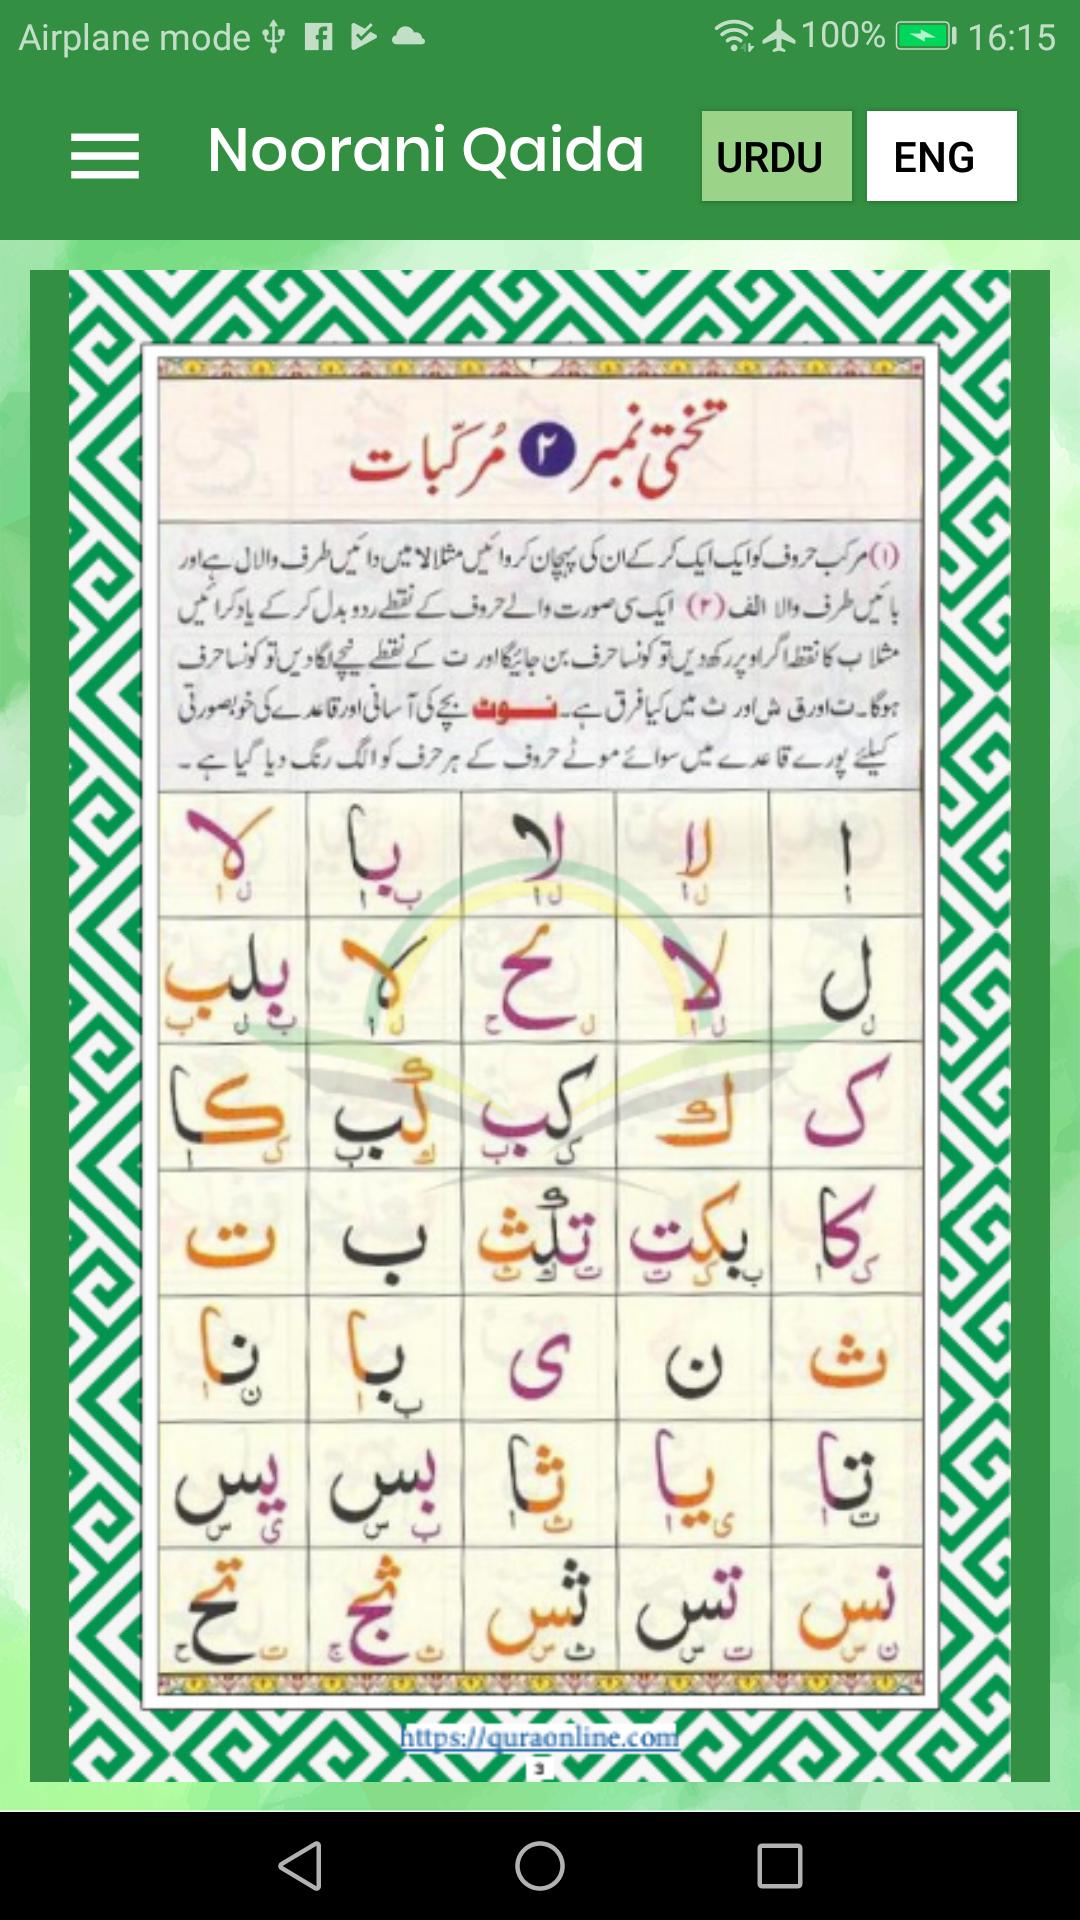 Airplane mode 100% 16:15
Noorani Qaida URDU ENG
تختی نمبر ۲ مُرکّبات
(۱) مرکب حروف کو ایک ایک کر کے ان کی پہچان کروائیں مثلا لا میں دائیں طرف والا ل ہے اور
بائیں طرف والا الف (۲) ایک سی صورت والے حروف کے نقطے ردو بدل کر کے یاد کرائیں
مثلا ب کا نقطہ اگر اوپر رکھ دیں تو کونسا حرف بن جائیگا اور ت کے نقطے نیچے لگا دیں تو کونسا حرف
ہوگا۔ ت اور ق ش اور ث میں کیا فرق ہے۔ نوٹ بچے کی آسانی اور قاعدے کی خوبصورتی
کیلئے پورے قاعدے میں سوائے موٹے حروف کے ہر حرف کو الگ رنگ دیا گیا ہے۔
ا لا لا با لا
ا ل ا ل ا ب ا ل ا
ل لا لح لا بلب
ل ل ا ل ح ل ا ب ل ب
ک ك کب كب کا
ک ب ك ب ک ا
کا بکت تكث ب ت
ک ا ب ک ت ت ك ث
ث ن ی با نا
ب ا ن ا
تا یا ثا بس یس
ت ا ی ا ث ا ب س ی س
نس تس ثس ثج تح
ن س ت س ث س ث ج ت ح
https://quraonline.com
3